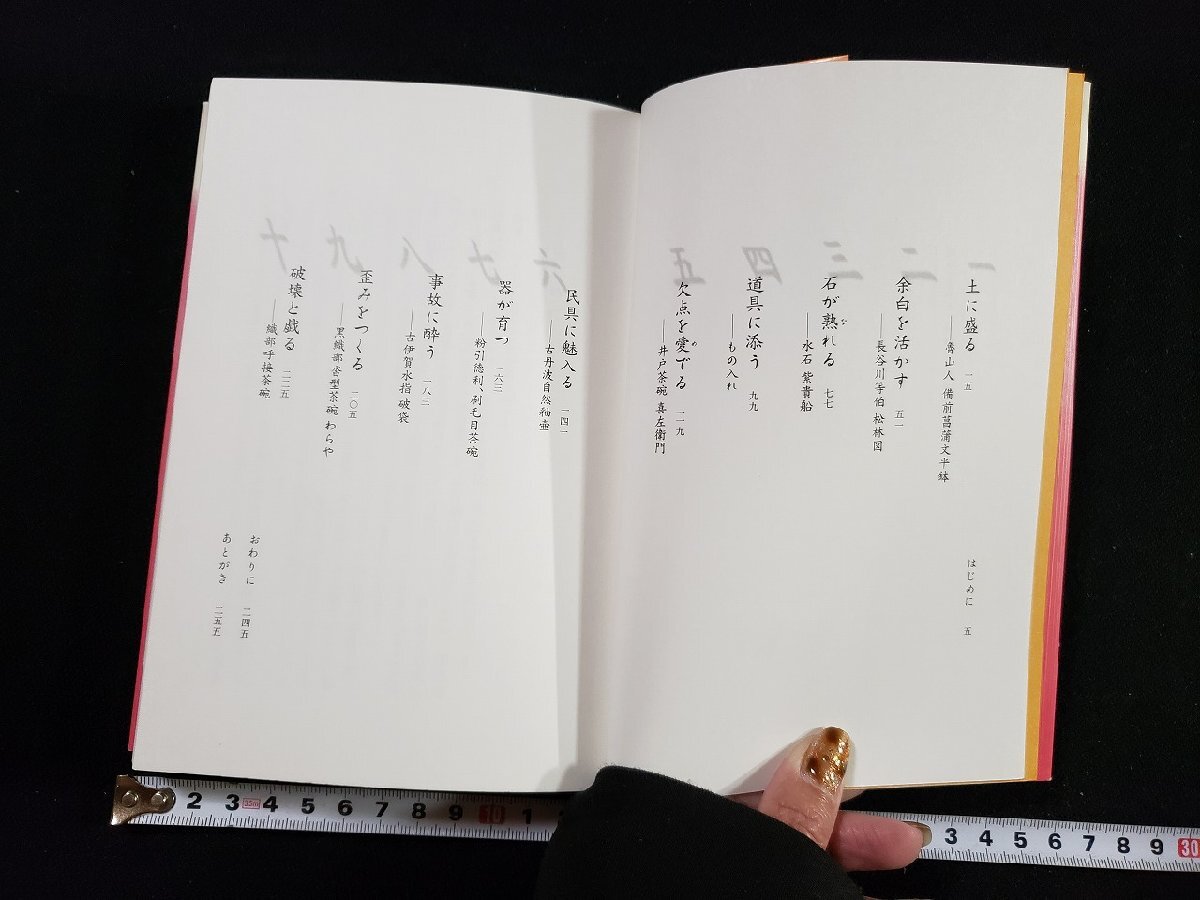 はじめに 五
一 土に盛る 一五
──魯山人 備前菖蒲文平鉢
二 余白を活かす 五一
──長谷川等伯 松林図
三 石が熟れる 七七
な
──水石 紫貴船
四 道具に添う 九九
──もの入れ
五 欠点を愛でる 一一九
め
──井戸茶碗 喜左衛門
六 民具に魅入る 一四一
──古丹波自然釉壺
七 器が育つ 一六三
──粉引徳利、刷毛目茶碗
八 事故に酔う 一八三
──古伊賀水指 破袋
九 歪みをつくる 二〇五
──黒織部沓型茶碗 わらや
十 破壊と戯る 二二五
──織部呼接茶碗
おわりに 二四五
あとがき 二五五
2 3 35m 4 5 6 7 8 9 10 1
3 4 5 6 7 8 9 30